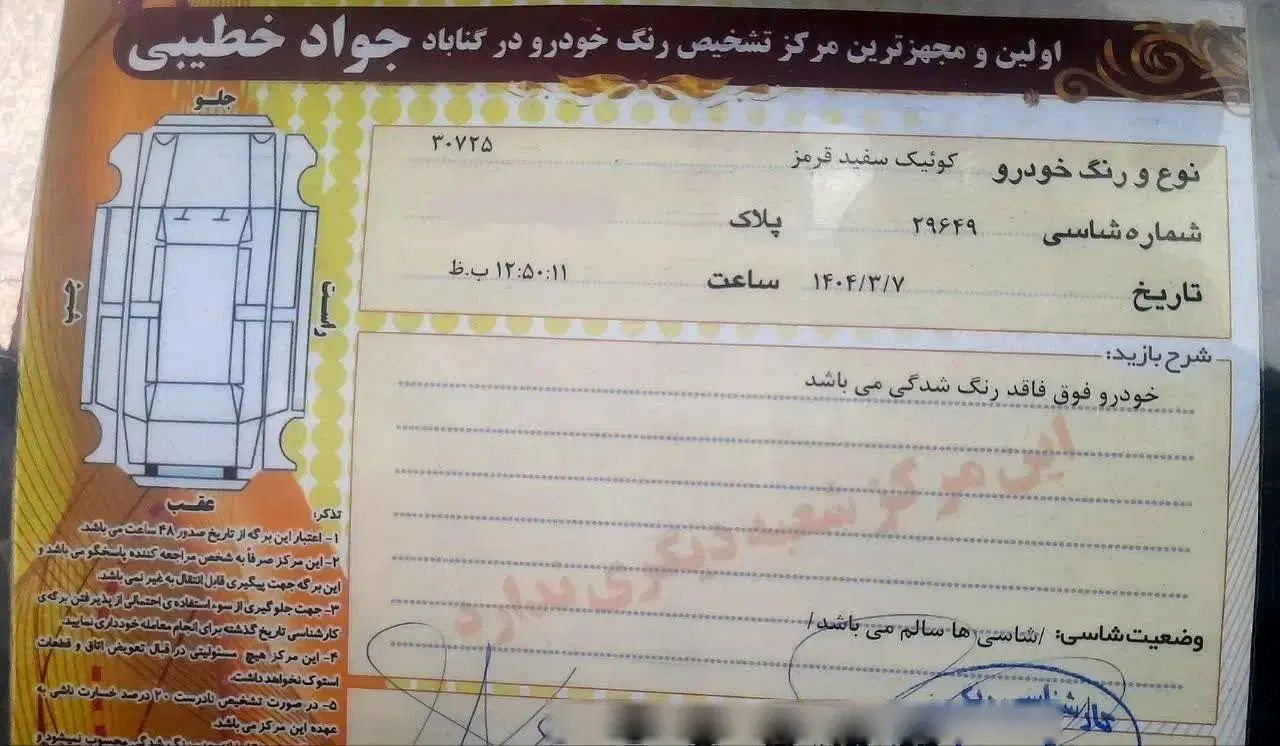 اولین و مجهزترین مرکز تشخیص رنگ خودرو در گناباد جواد خطیبی
جلو
راست
چپ
عقب
نوع و رنگ خودرو کوئیک سفید قرمز ۳۰۷۲۵
شماره شاسی ۲۹۶۴۹ پلاک
تاریخ ۱۴۰۴/۳/۷ ساعت ۱۲:۵۰:۱۱ ب.ظ
شرح بازدید:
خودرو فوق فاقد رنگ شدگی می باشد
این مرکز شعبه دیگری ندارد
وضعیت شاسی: /شاسی ها سالم می باشد/
تذکر:
۱- اعتبار این برگه از تاریخ صدور ۴۸ ساعت می باشد.
۲- این مرکز صرفاً به شخص مراجعه کننده پاسخگو می باشد و
این برگه جهت پیگیری قابل انتقال به غیر نمی باشد.
۳- جهت جلوگیری از سوء استفاده ی احتمالی از پذیرفتن برگه ی
کارشناسی تاریخ گذشته برای انجام معامله خودداری نمایید.
۴- این مرکز هیچ مسئولیتی در قبال تعویض اتاق و قطعات
استوک نخواهد داشت.
۵- در صورت تشخیص نادرست ۲۰ درصد خسارت ناشی به
عهده این مرکز می باشد.